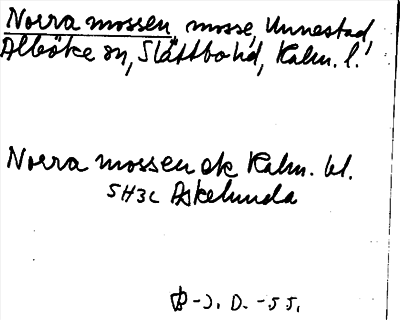 Norra mossen, mosse, Unnestad,
Alböke sn, Slättbo hd, Kalm. l.
Norra mossen ek Kalm. bl.
5H3c Askelunda
B-J. D. -55.